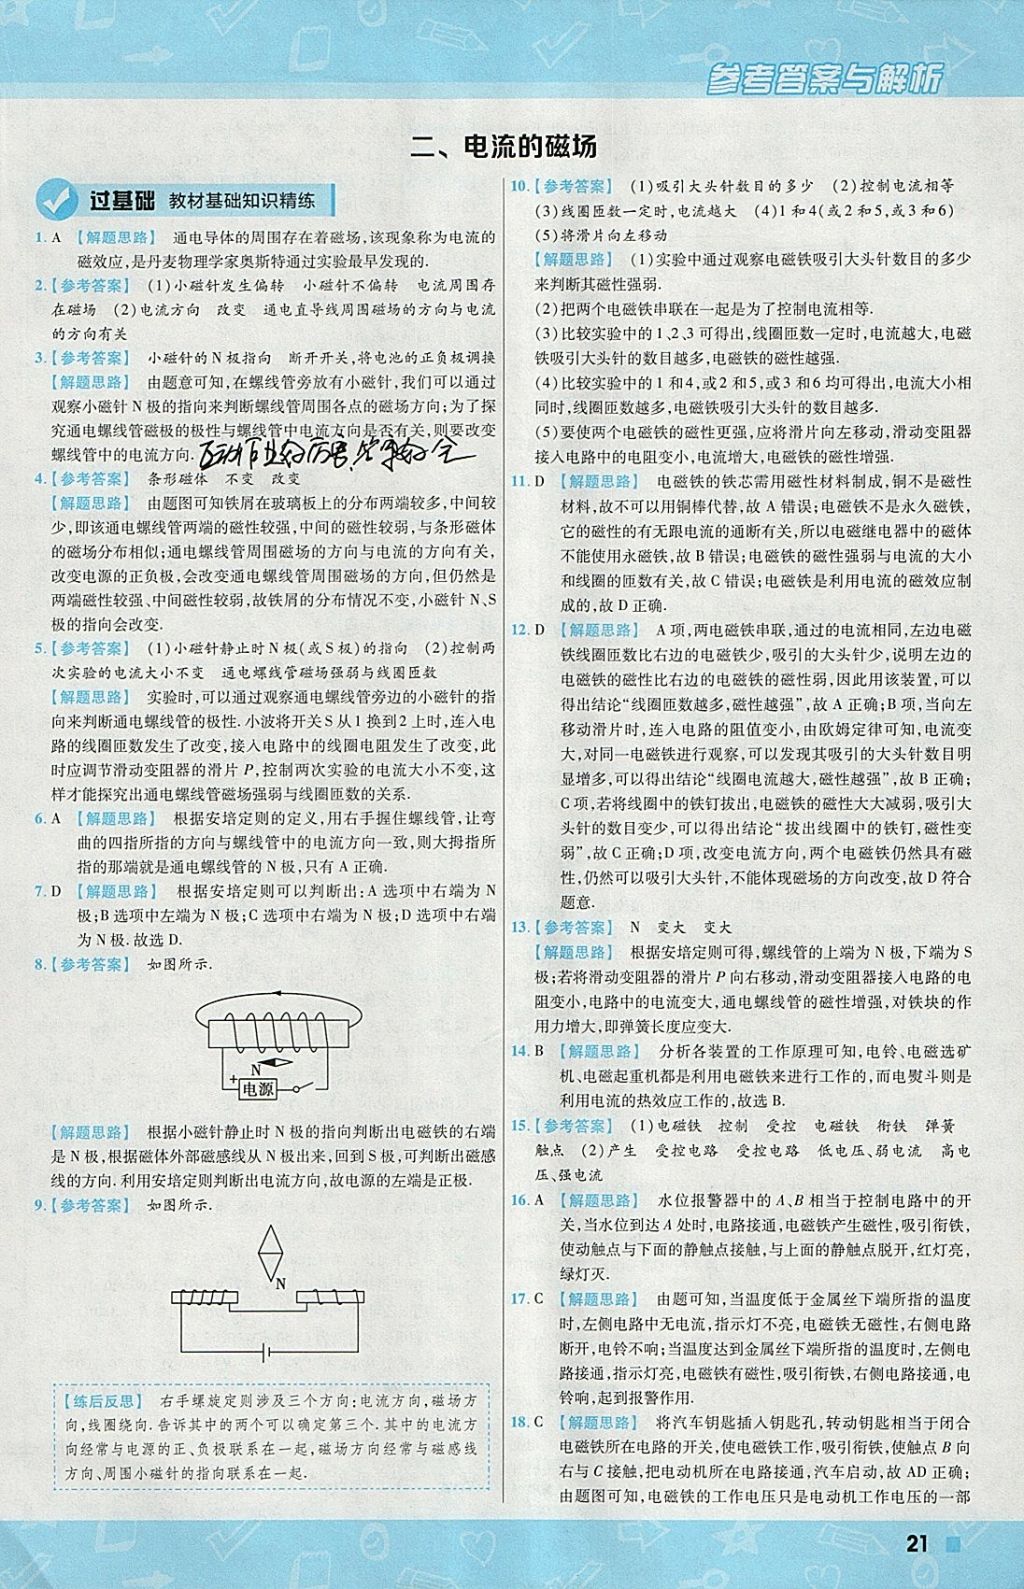 参考答案与解析
二、电流的磁场
过基础 教材基础知识精练
1. A 【解题思路】 通电导体的周围存在着磁场,该现象称为电流的
磁效应,是丹麦物理学家奥斯特通过实验最早发现的.
2.【参考答案】 (1)小磁针发生偏转 小磁针不偏转 电流周围存
在磁场 (2)电流方向 改变 通电直导线周围磁场的方向与电流
的方向有关
3.【参考答案】 小磁针的N极指向 断开开关,将电池的正负极调换
【解题思路】 由题意可知,在螺线管旁放有小磁针,我们可以通过
观察小磁针N极的指向来判断螺线管周围各点的磁场方向;为了探
究通电螺线管磁极的极性与螺线管中电流方向是否有关,则要改变
螺线管中的电流方向.
4.【参考答案】 条形磁体 不变 改变
【解题思路】 由题图可知铁屑在玻璃板上的分布两端较多,中间较
少,即该通电螺线管两端的磁性较强,中间的磁性较弱,与条形磁体
的磁场分布相似;通电螺线管周围磁场的方向与电流的方向有关,
改变电源的正负极,会改变通电螺线管周围磁场的方向,但仍然是
两端磁性较强、中间磁性较弱,故铁屑的分布情况不变,小磁针N、S
极的指向会改变.
5.【参考答案】 (1)小磁针静止时N极(或S极)的指向 (2)控制两
次实验的电流大小不变 通电螺线管磁场强弱与线圈匝数
【解题思路】 实验时,可以通过观察通电螺线管旁边的小磁针的指
向来判断通电螺线管的极性. 小波将开关S从1换到2上时,连入电
路的线圈匝数发生了改变,接入电路中的线圈电阻发生了改变,此
时应调节滑动变阻器的滑片P,控制两次实验的电流大小不变,这
样才能探究出通电螺线管磁场强弱与线圈匝数的关系.
6. A 【解题思路】 根据安培定则的定义,用右手握住螺线管,让弯
曲的四指所指的方向与螺线管中的电流方向一致,则大拇指所
指的那端就是通电螺线管的N极,只有A正确.
7. D 【解题思路】 根据安培定则可以判断出:A选项中右端为N
极;B选项中左端为N极;C选项中右端为N极;D选项中右端
为N极.故选D.
8.【参考答案】 如图所示.
N
+
电源
【解题思路】 根据小磁针静止时N极的指向判断出电磁铁的右端
是N极,根据磁体外部磁感线从N极出来,回到S极,可判断出磁感
线的方向.利用安培定则判断出电流方向,故电源的左端是正极.
9.【参考答案】 如图所示.
N
【练后反思】 右手螺旋定则涉及三个方向:电流方向,磁场方
向,线圈绕向.告诉其中的两个可以确定第三个.其中的电流方
向经常与电源的正、负极联系在一起,磁场方向经常与磁感线
方向、周围小磁针的指向联系在一起.
10.【参考答案】 (1)吸引大头针数目的多少 (2)控制电流相等
(3)线圈匝数一定时,电流越大 (4)1和4(或2和5,或3和6)
(5)将滑片向左移动
【解题思路】 (1)实验中通过观察电磁铁吸引大头针数目的多少
来判断其磁性强弱.
(2)把两个电磁铁串联在一起是为了控制电流相等.
(3)比较实验中的1、2、3可得出,线圈匝数一定时,电流越大,电磁
铁吸引大头针的数目越多,电磁铁的磁性越强.
(4)比较实验中的1和4,或2和5,或3和6均可得出,电流大小相
同时,线圈匝数越多,电磁铁吸引大头针的数目越多.
(5)要使两个电磁铁的磁性更强,应将滑片向左移动,滑动变阻器
接入电路中的电阻变小,电流增大,电磁铁的磁性增强.
11. D 【解题思路】 电磁铁的铁芯需用磁性材料制成,铜不是磁性
材料,故不可以用铜棒代替,故A错误;电磁铁不是永久磁铁,
它的磁性的有无跟电流的通断有关,所以电磁继电器中的磁体
不能使用永磁铁,故B错误;电磁铁的磁性强弱与电流的大小
和线圈的匝数有关,故C错误;电磁铁是利用电流的磁效应制
成的,故D正确.
12. D 【解题思路】 A项,两电磁铁串联,通过的电流相同,左边电磁
铁线圈匝数比右边的电磁铁少,吸引的大头针少,说明左边的
电磁铁的磁性比右边的电磁铁的磁性弱,因此用该装置,可以
得出结论“线圈匝数越多,磁性越强”,故A正确;B项,当向左
移动滑片时,连入电路的阻值变小,由欧姆定律可知,电流变
大,对同一电磁铁进行观察,可以发现其吸引的大头针数目明
显增多,可以得出结论“线圈电流越大,磁性越强”,故B正确;
C项,若将线圈中的铁钉拔出,电磁铁的磁性大大减弱,吸引大
头针的数目变少,可以得出结论“拔出线圈中的铁钉,磁性变
弱”,故C正确;D项,改变电流方向,两个电磁铁仍然具有磁
性,仍然可以吸引大头针,不能体现磁场的方向改变,故D符合
题意.
13.【参考答案】 N 变大 变大
【解题思路】 根据安培定则可得,螺线管的上端为N极,下端为S
极;若将滑动变阻器的滑片P向右移动,滑动变阻器接入电路的电
阻变小,电路中的电流变大,通电螺线管的磁性增强,对铁块的作
用力增大,即弹簧长度应变大.
14. B 【解题思路】 分析各装置的工作原理可知,电铃、电磁选矿
机、电磁起重机都是利用电磁铁来进行工作的,而电熨斗则是
利用电流的热效应工作的,故选B.
15.【参考答案】 (1)电磁铁 控制 受控 电磁铁 衔铁 弹簧
触点 (2)产生 受控电路 受控电路 低电压、弱电流 高电
压、强电流
16. A 【解题思路】 水位报警器中的A、B相当于控制电路中的开
关,当水位到达A处时,电路接通,电磁铁产生磁性,吸引衔铁,
使动触点与下面的静触点接触,与上面的静触点脱开,红灯亮,
绿灯灭.
17. C 【解题思路】 由题可知,当温度低于金属丝下端所指的温度
时,左侧电路中无电流,指示灯不亮,电磁铁无磁性,右侧电路
断开,电铃不响;当温度达到金属丝下端所指的温度时,左侧电
路接通,指示灯亮,电磁铁有磁性,吸引衔铁,右侧电路接通,电
铃响,起到报警作用.
18. C 【解题思路】 将汽车钥匙插入钥匙孔,转动钥匙相当于闭合
电磁铁所在电路的开关,使电磁铁工作,吸引衔铁,使触点B向
右与C接触,把电动机所在电路接通,汽车启动,故AD正确.
由题图可知,电磁铁的工作电压只是电动机工作电压的一部
21